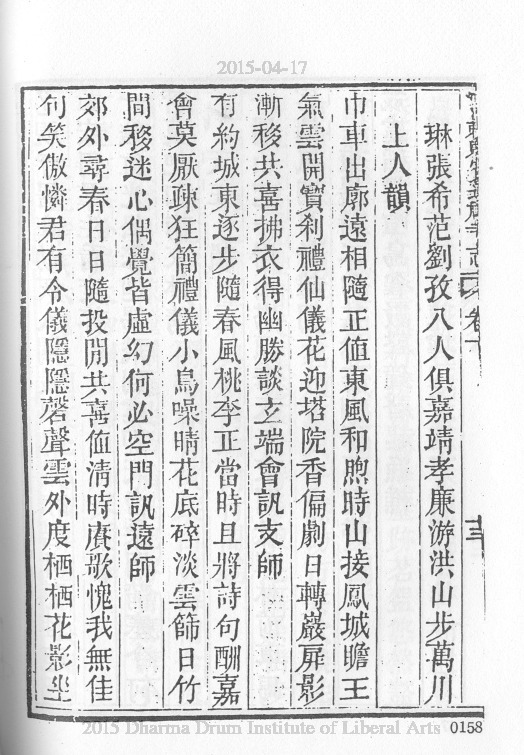 2015-04-17
琳張希范劉孜八人俱嘉靖孝廉游洪山步萬川
上人韻
巾車出廓遠相隨正値東風和煦時山接鳳城瞻王
氣雲開寶刹禮仙儀花迎塔院香偏劇日轉巖屏影
漸移共喜拂衣得幽勝談玄端會訊支師
有約城東逐步隨春風桃李正當時且將詩句酬嘉
會莫厭疎狂簡禮儀小鳥噪晴花底碎淡雲篩日竹
間移迷心偶覺皆虛幻何必空門訊遠師
郊外尋春日日隨投閒共喜值淸時賡歌愧我無佳
句笑傲憐君有令儀隱隱磬聲雲外度栖栖花影坐
志 卷
十三
2015 Dharma Drum Institute of Liberal Arts
0158